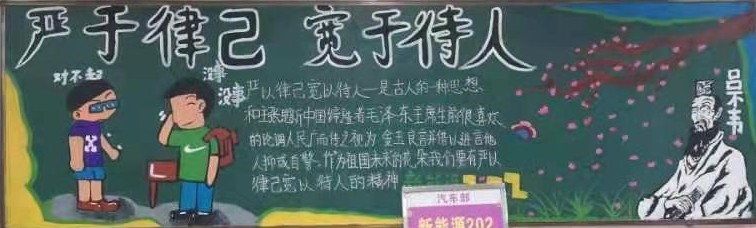 严于律己 宽于待人
对不起
没事
没事
吕不韦
严以律己宽以待人一是古人的一种思想
和主张题所中国缔造者毛泽东主席生前很喜欢
的论调人民广而传之视为金玉良言并借以进言他
人抑或自警、作为祖国未来的花朵我们要有严以
律己宽以待人的精神
汽车部
新能源202